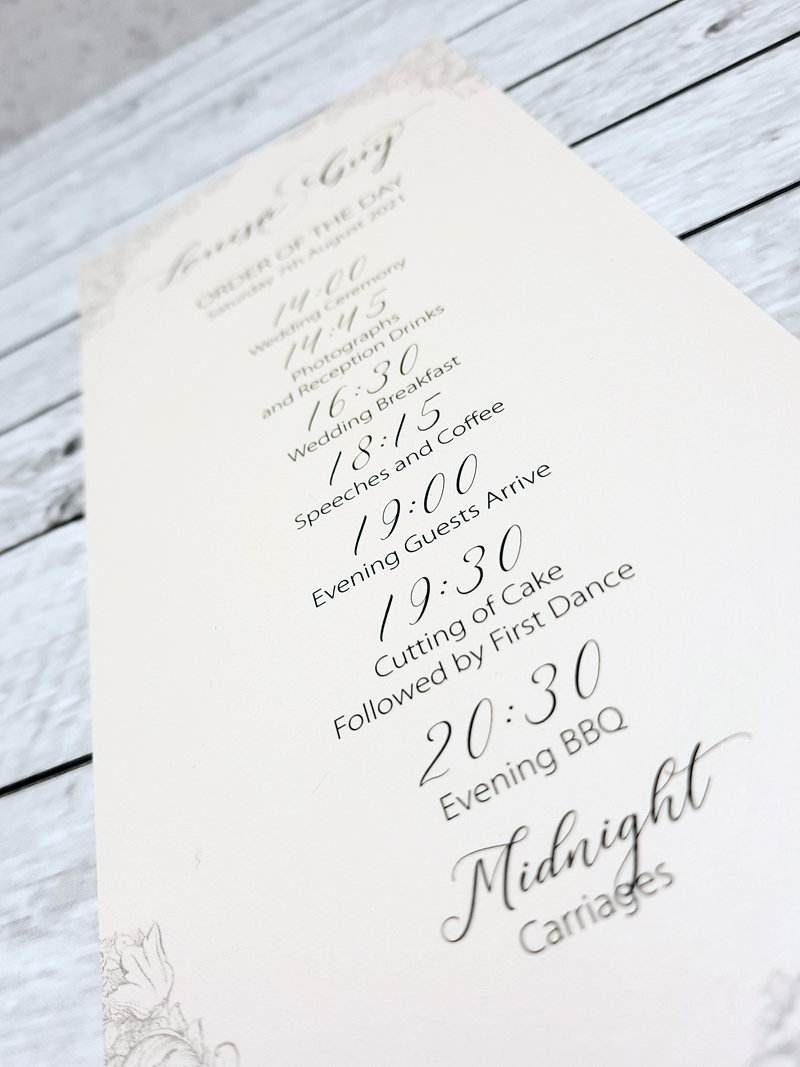 Louise & Guy
ORDER OF THE DAY
Saturday 7th August 2021
14:00
Wedding Ceremony
14:45
Photographs
and Reception Drinks
16:30
Wedding Breakfast
18:15
Speeches and Coffee
19:00
Evening Guests Arrive
19:30
Cutting of Cake
Followed by First Dance
20:30
Evening BBQ
Midnight
Carriages